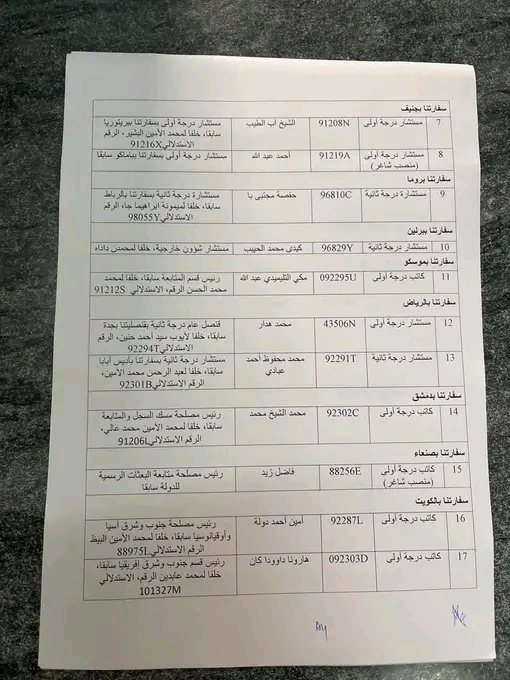 سفارتنا بجنيف
7 مستشار درجة أولى 91208N الشيخ اب الطيب مستشار درجة أولى بسفارتنا ببريتوريا
سابقا، خلفا لمحمد الأمين البشير، الرقم
الاستدلالي91216X
8 مستشار درجة أولى 91219A أحمد عبد الله مستشار درجة أولى بسفارتنا بباماكو سابقا
(منصب شاغر)
سفارتنا بروما
9 مستشارة درجة ثانية 96810C حفصة مجتبى با مستشارة درجة ثانية بسفارتنا بالرباط
سابقا، خلفا لميمونة ابراهيما جا، الرقم
الاستدلالي98055Y
سفارتنا ببرلين
10 مستشار درجة ثانية 96829Y كيدى محمد الحبيب مستشار شؤون خارجية، خلفا لمحمدن داداه
سفارتنا بموسكو
11 كاتب درجة أولى 092295U مكي التلميدي عبد الله رئيس قسم المتابعة سابقا، خلفا لمحمد
محمد الحسن الرقم، الاستدلالي 91212S
سفارتنا بالرياض
12 مستشار درجة أولى 43506N محمد هدار قنصل عام درجة ثانية بقنصليتنا بجدة
سابقا، خلفا لأيوب سيد أحمد حنين، الرقم
الاستدلالي92294T
13 مستشار درجة ثانية 92291T محمد محفوظ أحمد مستشار درجة ثانية بسفارتنا بأديس أبابا
عبادي سابقا، خلفا لعبد الرحمن محمد الأمين،
الرقم الاستدلالي92301B
سفارتنا بدمشق
14 كاتب درجة أولى 92302C محمد الشيخ محمد رئيس مصلحة مسك السجل والمتابعة
سابقا، خلفا لمحمد الأمين محمد عالي،
الرقم الاستدلالي91206L
سفارتنا بصنعاء
15 كاتب درجة أولى 88256E فاضل زيد رئيس مصلحة متابعة البعثات الرسمية
(منصب شاغر) للدولة سابقا
سفارتنا بالكويت
16 كاتب درجة أولى 92287L أمين أحمد دولة رئيس مصلحة جنوب وشرق آسيا
وأوقيانوسيا سابقا، خلفا لمحمد الأمين البيظ
الرقم الاستدلالي88975L
17 كاتب درجة أولى 092303D هارونا داوودا كان رئيس قسم جنوب وشرق إفريقيا سابقا،
خلفا لمحمد عابدين الرقم، الاستدلالي
101327M